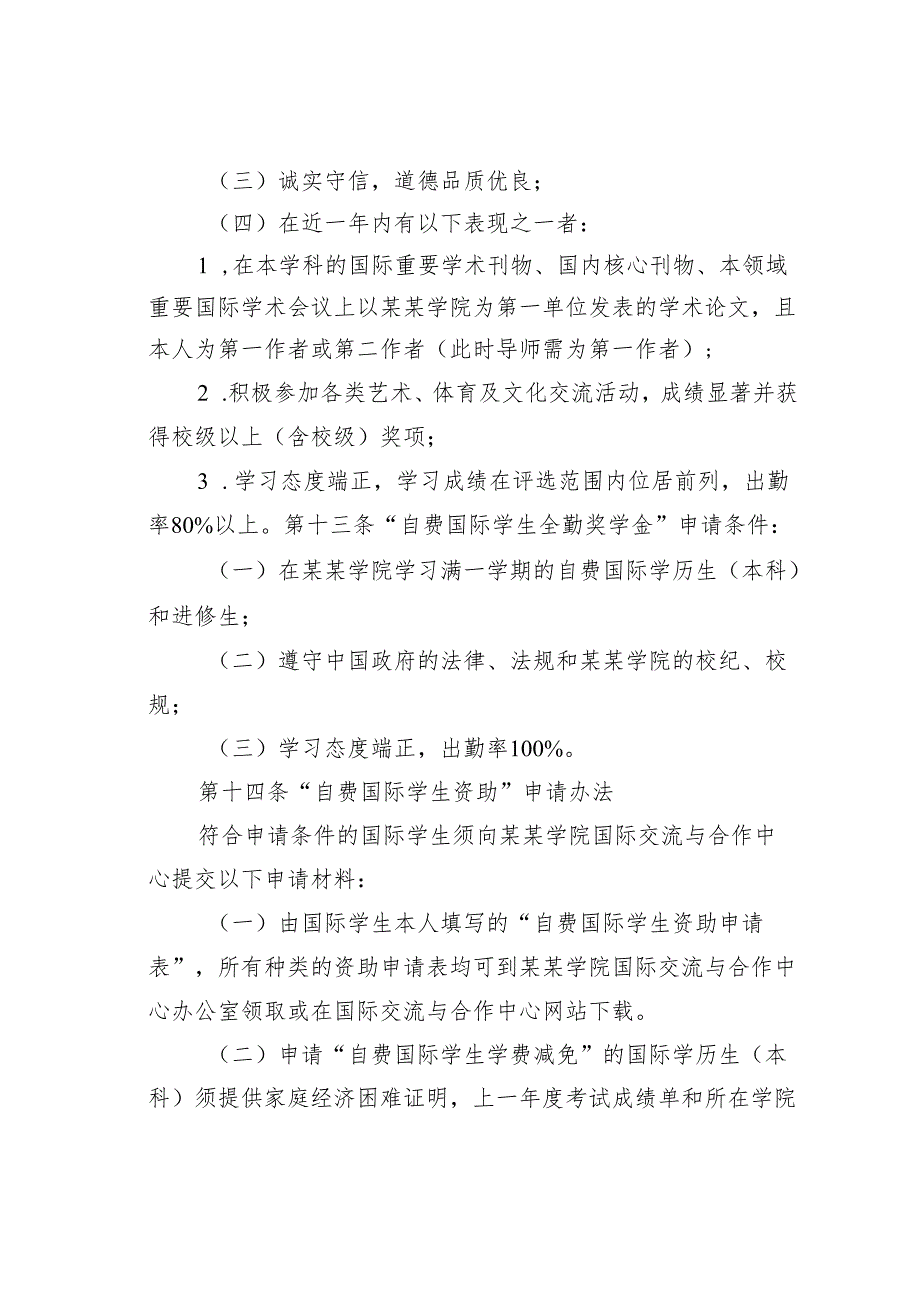 （三）诚实守信，道德品质优良；
（四）在近一年内有以下表现之一者：
1 ,在本学科的国际重要学术刊物、国内核心刊物、本领域
重要国际学术会议上以某某学院为第一单位发表的学术论文，且
本人为第一作者或第二作者（此时导师需为第一作者）；
2 .积极参加各类艺术、体育及文化交流活动，成绩显著并获
得校级以上（含校级）奖项；
3 .学习态度端正，学习成绩在评选范围内位居前列，出勤
率80%以上。第十三条“自费国际学生全勤奖学金”申请条件：
（一）在某某学院学习满一学期的自费国际学历生（本科）
和进修生；
（二）遵守中国政府的法律、法规和某某学院的校纪、校
规；
（三）学习态度端正，出勤率100%。
第十四条“自费国际学生资助”申请办法
符合申请条件的国际学生须向某某学院国际交流与合作中
心提交以下申请材料：
（一）由国际学生本人填写的“自费国际学生资助申请
表”，所有种类的资助申请表均可到某某学院国际交流与合作中
心办公室领取或在国际交流与合作中心网站下载。
（二）申请“自费国际学生学费减免”的国际学历生（本
科）须提供家庭经济困难证明，上一年度考试成绩单和所在学院